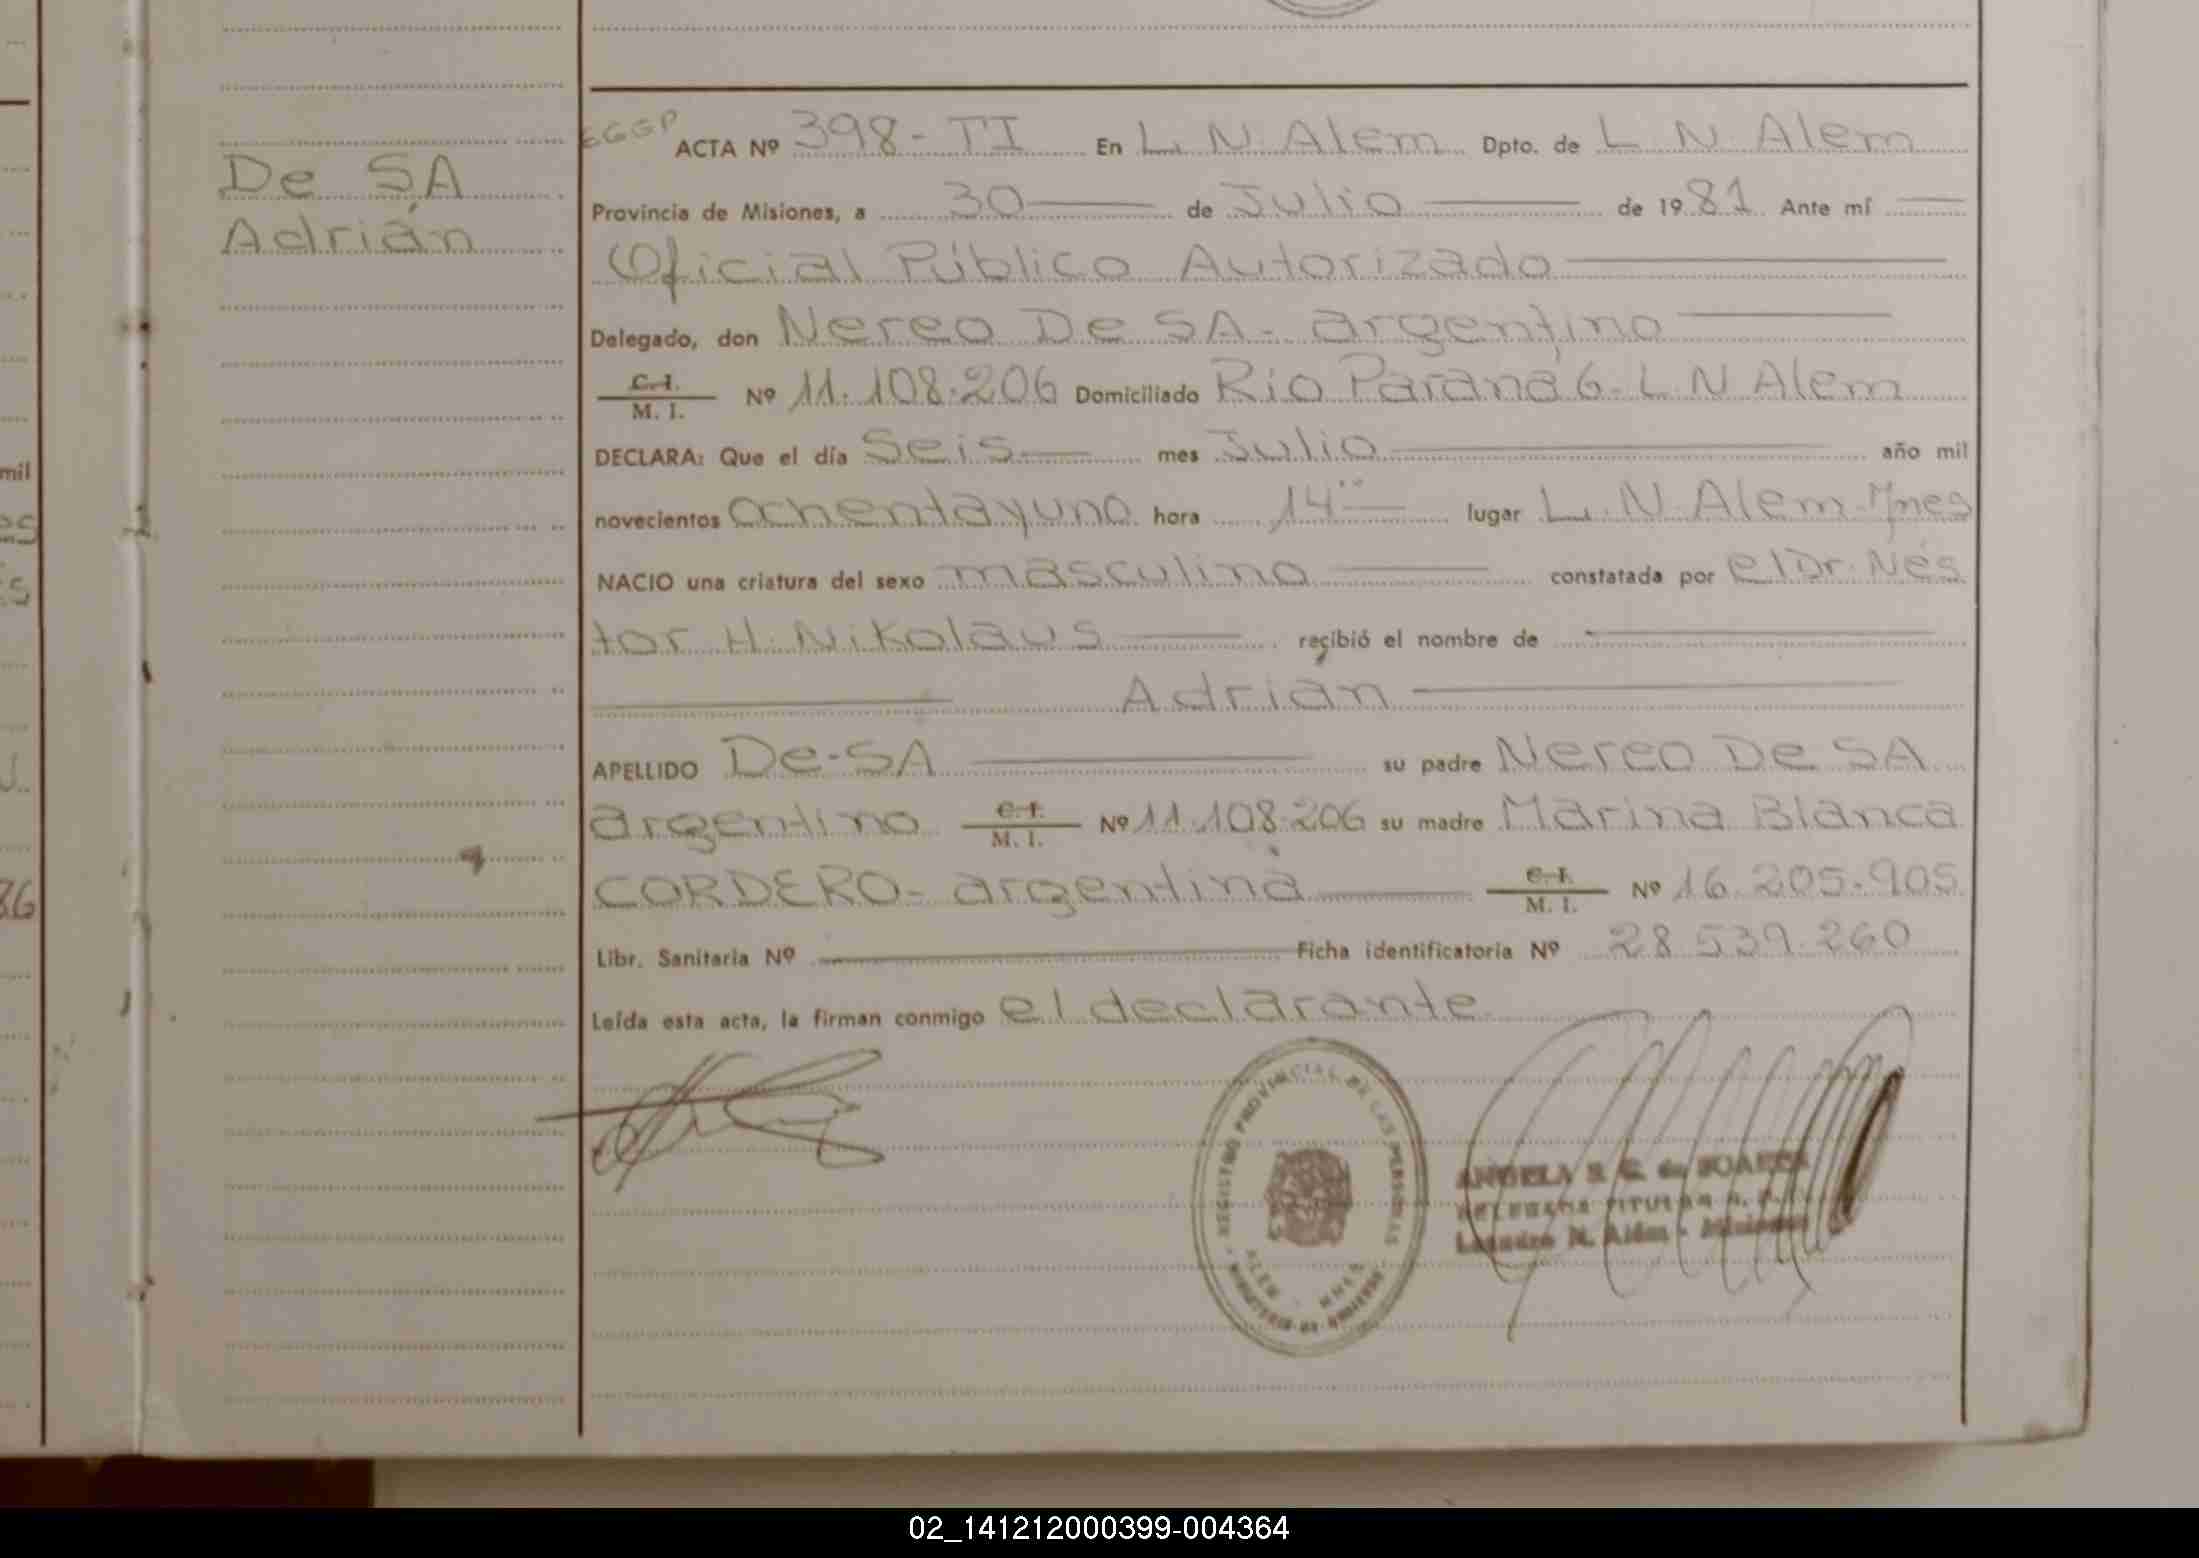 De SA
Adrián
EGGP ACTA Nº 398-TI En L. N. Alem Dpto. de L. N. Alem
Provincia de Misiones, a 30 de Julio de 1981 Ante mí
Oficial Público Autorizado
Delegado, don Nereo De SA- argentino
C. I.
M. I. Nº 11.108.206 Domiciliado Rio Paraná 6- L N Alem
DECLARA: Que el día Seis mes Julio año mil
novecientos ochentayuno hora 14°° lugar L. N. Alem-Mnes
NACIO una criatura del sexo masculino constatada por el Dr. Nés
tor H. Nikolaus recibió el nombre de
Adrián
APELLIDO De-SA su padre Nereo De SA
argentino C. I. M. I. Nº 11.108.206 su madre Marina Blanca
CORDERO- argentina C. I. M. I. Nº 16.205.905
Libr. Sanitaria Nº Ficha identificatoria Nº 28.539.260
Leída esta acta, la firman conmigo el declarante
REGISTRO PROVINCIAL DE LAS PERSONAS
ALEM - MNES
MINISTERIO DE GOBIERNO
ANGELA S. C. de SUAREZ
DELEGADA TITULAR
Leandro N. Alem - Misiones
mil
os
es
86
02_141212000399-004364